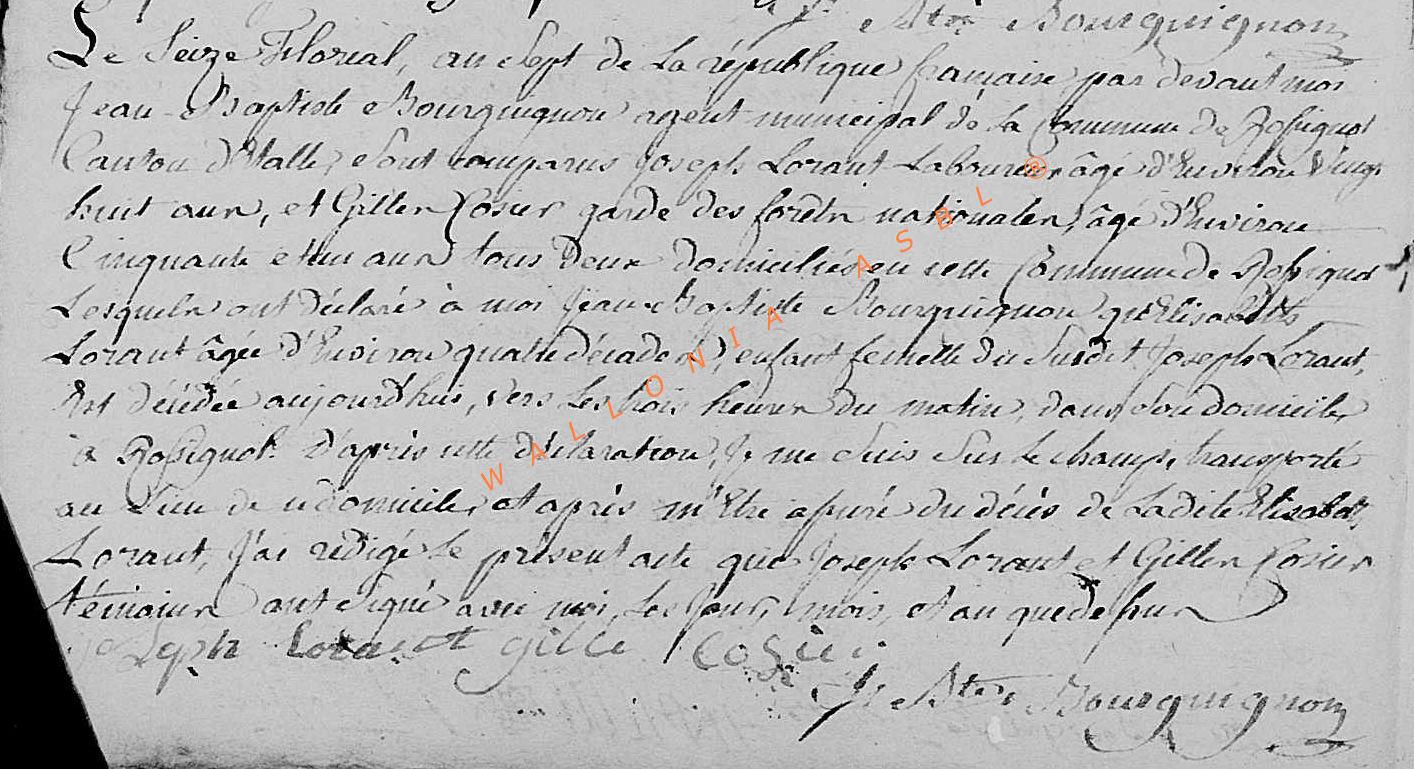 J. Btte Bourguignon
Le Seize Floréal, an Sept de la république française par devant moi
Jean-Baptiste Bourguignon agent municipal de la Commune de Rossignol
Canton d'Etalle Sont comparus Joseph Lorant Laboureur âgé d'Environ Vingt
huit ans, et Gilles Cosier garde des forêts nationales, âgé d'Environ
Cinquante et un ans tous Deux domiciliés en cette Commune de Rossignol
Lesquels ont Déclaré à moi Jean Baptiste Bourguignon qu'Elisabeth
Lorant âgée d'Environ quatre décades, enfant femelle du Susdit Joseph Lorant,
Est décédée aujourd'hui, vers les trois heures du matin, dans son domicile
à Rossignol. D'après cette déclaration, Je me Suis Sur le champ, transporté
au Lieu de ce domicile, et après m'Etre assuré du décès de Ladite Elisabeth
Lorant, J'ai rédigé Le présent acte que Joseph Lorant et Gilles Cosier
témoins ont Signé avec moi, Les Jour, mois, et an que dessus
Joseph Lorant gille Cosier
J. Btte Bourguignon
WALLONIA ASBL ®